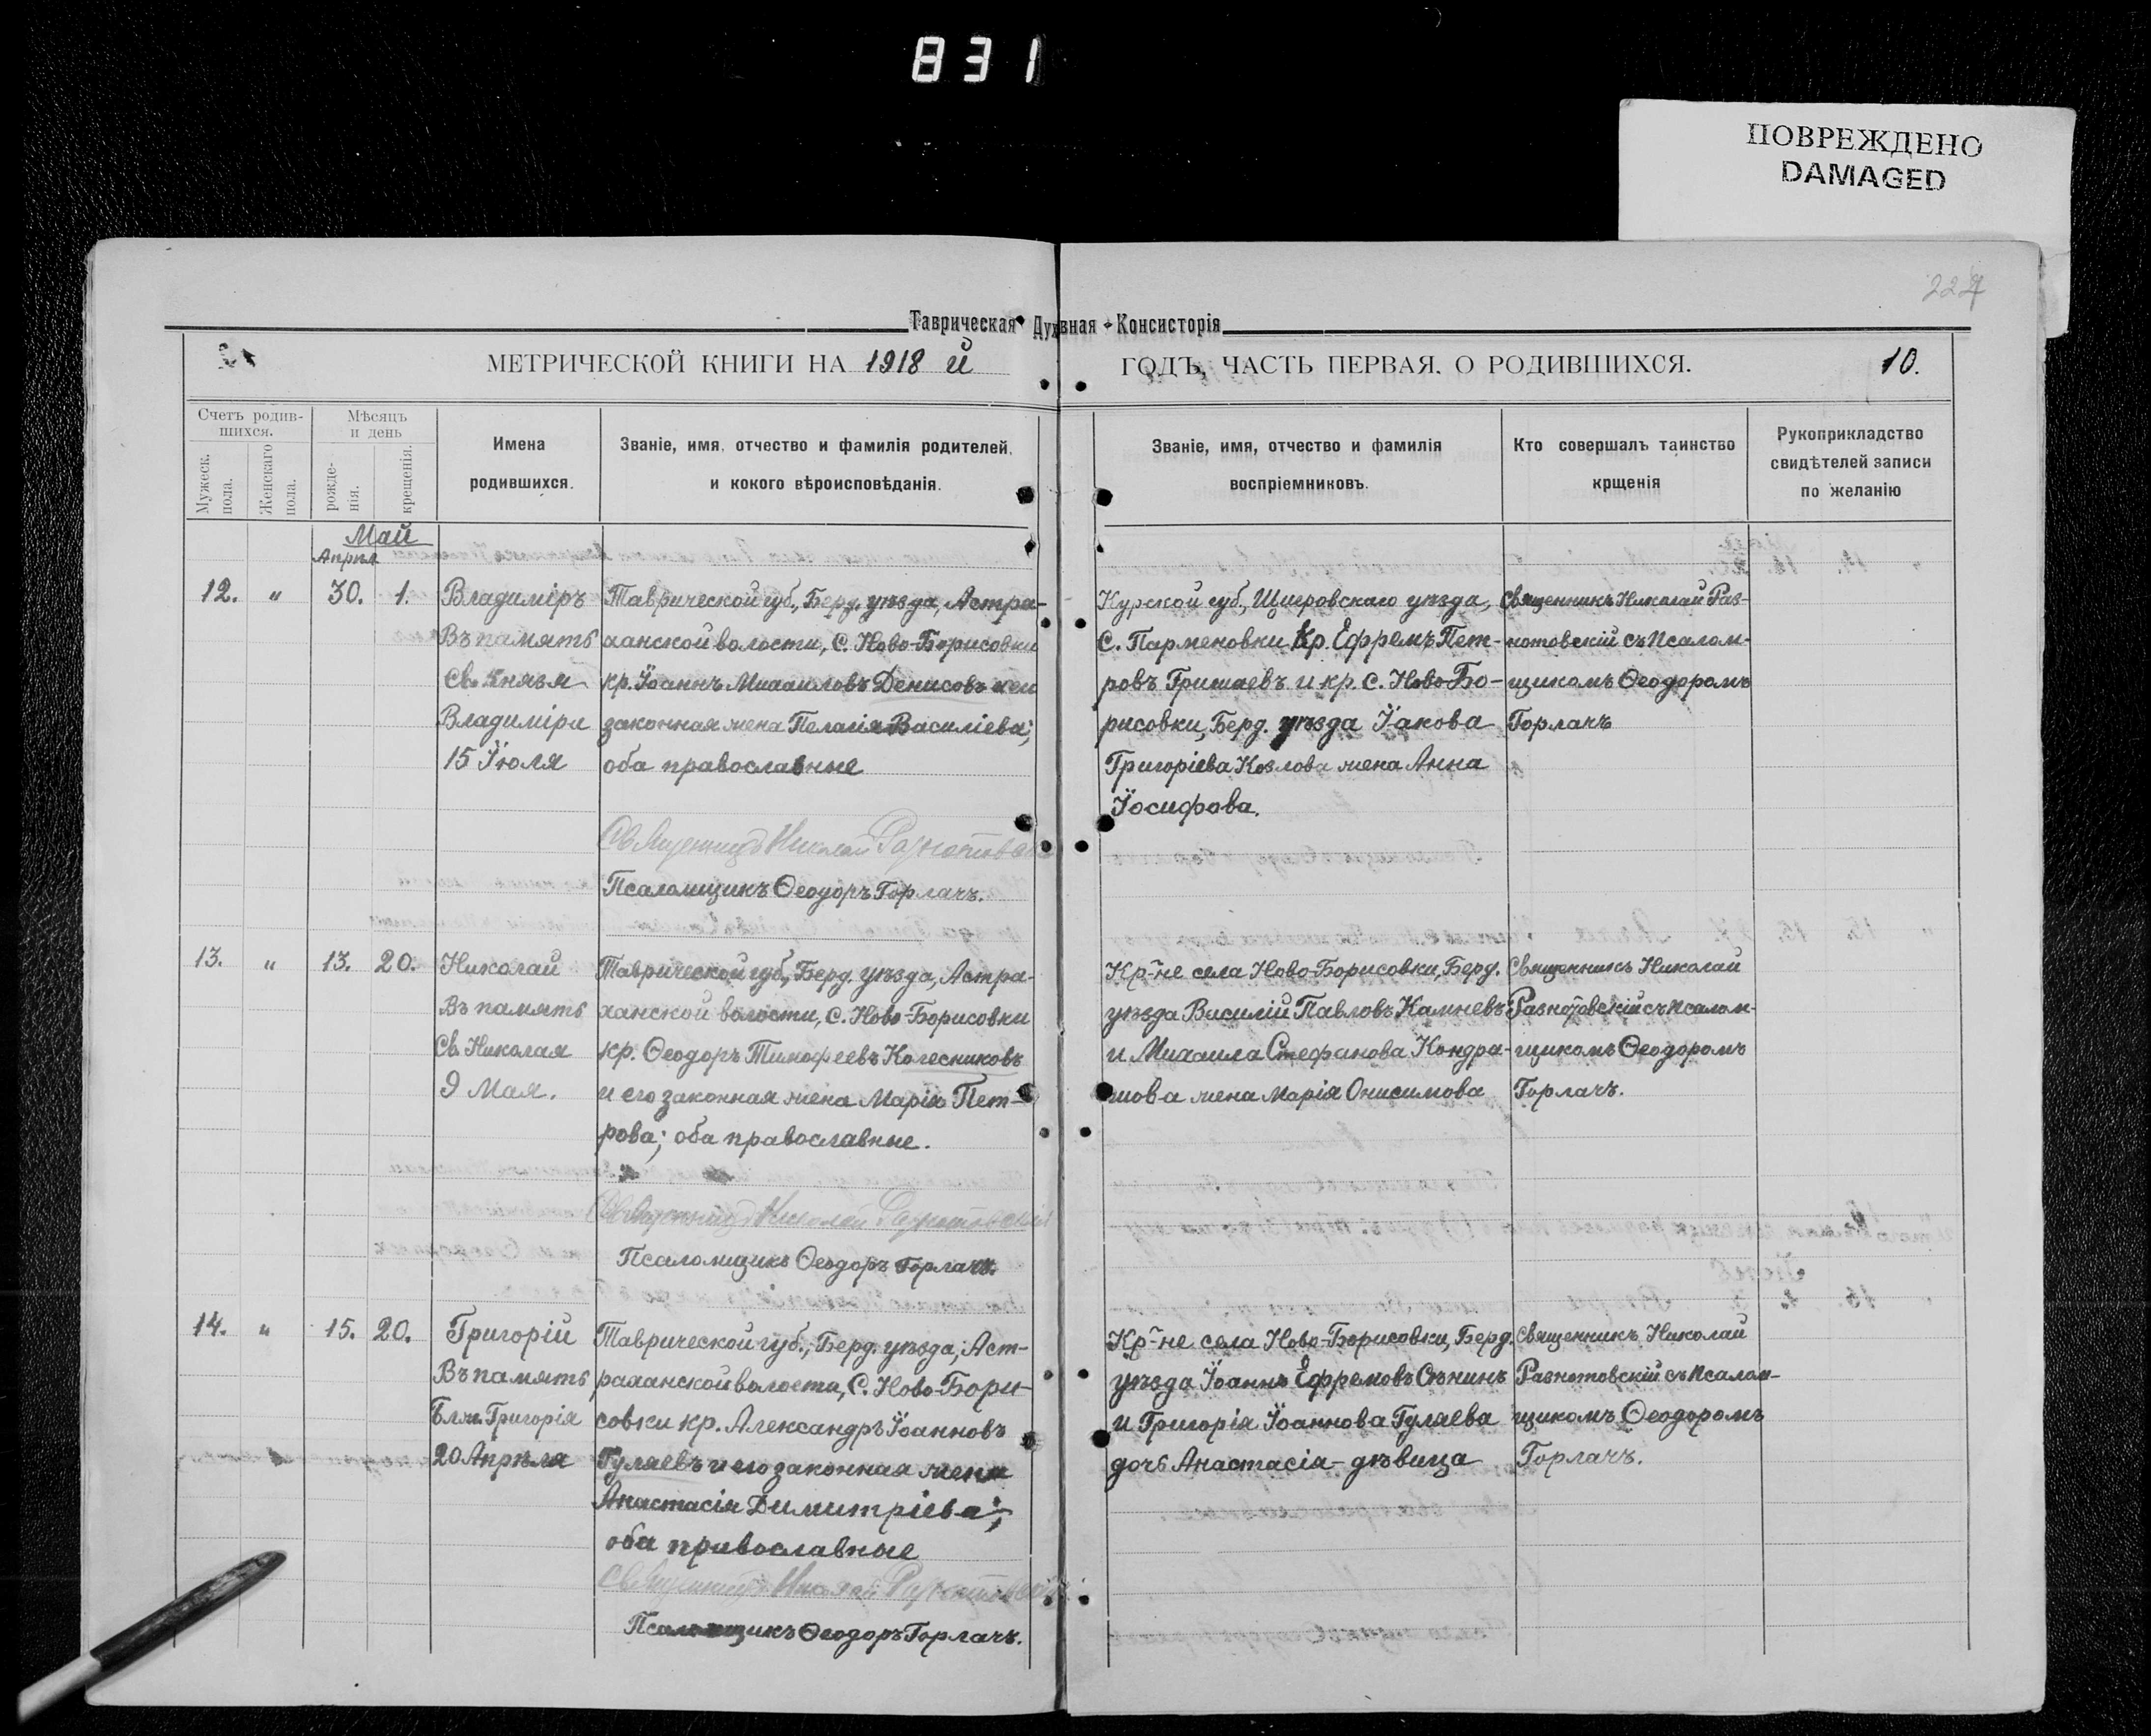 831
ПОВРЕЖДЕНО
DAMAGED
Таврическая Духовная Консисторія
МЕТРИЧЕСКОЙ КНИГИ НА 1918 й ГОДЪ, ЧАСТЬ ПЕРВАЯ, О РОДИВШИХСЯ. 10.
Счетъ родив-
шихся.
Мужеск.
пола.
Женскаго
пола.
Мѣсяцъ
и день
рожде-
нія.
крещенія.
Имена
родившихся.
Званіе, имя, отчество и фамилія родителей,
и кокого вѣроисповѣданія.
Званіе, имя, отчество и фамилія
воспріемниковъ.
Кто совершалъ таинство
крщенія
Рукоприкладство
свидѣтелей записи
по желанію
Май
Апрѣл
12. " 30. 1.
Владиміръ
Въ память
Св. Князя
Владиміра
15 Іюля
Таврической губ., Берд. уѣзда, Астра-
ханской волости, С. Ново-Борисовки
кр. Іоаннъ Михаиловъ Денисовъ и его
законная жена Пелагія Василіева;
оба православные
Священникъ Николай Разнотовскій
Псаломщикъ Ѳеодоръ Горлачъ.
Курской губ., Щигровскаго уѣзда,
С. Парменовки Кр. Ефремъ Пет-
ровъ Гришаевъ и кр. С. Ново-Бо-
рисовки, Берд. уѣзда Іакова
Григоріева Козлова жена Анна
Іосифова.
Священникъ Николай Раз-
нотовскій съ Псалом-
щикомъ Ѳеодоромъ
Горлачъ
13. " 13. 20.
Николай
Въ память
Св. Николая
9 Мая.
Таврической губ., Берд. уѣзда, Астра-
ханской волости, С. Ново-Борисовки
кр. Ѳеодоръ Тимофеевъ Колесниковъ
и его законная жена Марія Пет-
рова; оба православные.
Священникъ Николай Разнотовскій
Псаломщикъ Ѳеодоръ Горлачъ.
Кр-не села Ново-Борисовки, Берд.
уѣзда Василій Павловъ Камневъ
и Михаила Стефанова Кондра-
шова жена Марія Онисимова
Священникъ Николай
Разнотовскій съ Псалом-
щикомъ Ѳеодоромъ
Горлачъ.
14. " 15. 20.
Григорій
Въ память
Григорія
20 Апрѣля
Таврической губ., Берд. уѣзда, Аст-
раханской волости, С. Ново-Бори-
совки кр. Александръ Іоанновъ
Гуляевъ и его законная жена
Анастасія Димитріева;
оба православные
Священникъ Николай Разнотовскій
Псаломщикъ Ѳеодоръ Горлачъ.
Кр-не села Ново-Борисовки, Берд.
уѣзда Іоаннъ Ефремовъ Сѣнинъ
и Григорія Іоаннова Гуляева
дочь Анастасія - дѣвица
Священникъ Николай
Разнотовскій съ Псалом-
щикомъ Ѳеодоромъ
Горлачъ.